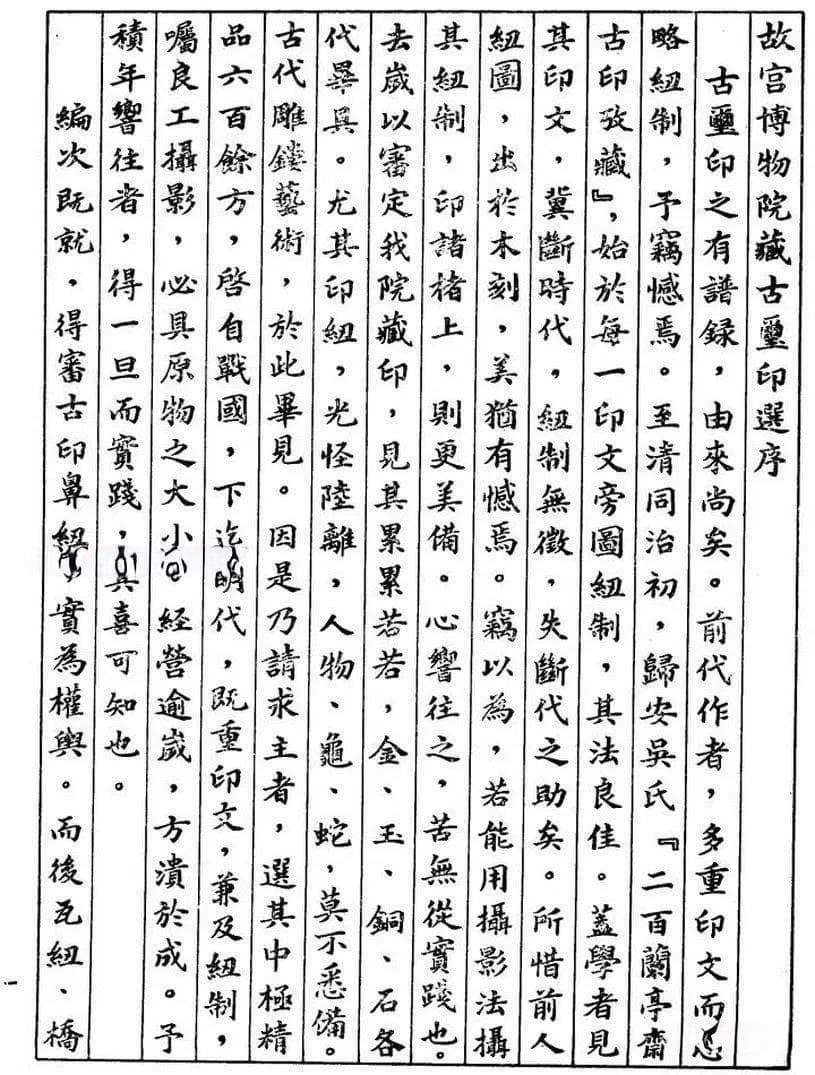 故宮博物院藏古璽印選序
古璽印之有譜録，由來尚矣。前代作者，多重印文而忽
略紐制，予竊憾焉。至清同治初，歸安吳氏『二百蘭亭齋
古印攷藏』，始於每一印文旁圖紐制，其法良佳。蓋學者見
其印文，冀斷時代，紐制無徵，失斷代之助矣。所惜前人
紐圖，出於木刻，美猶有憾焉。竊以為，若能用攝影法攝
其紐制，印諸楮上，則更美備。心響往之，苦無從實踐也。
去歲以審定我院藏印，見其累累若若，金、玉、銅、石各
代畢具。尤其印紐，光怪陸離，人物、龜、蛇，莫不悉備。
古代雕鏤藝術，於此畢見。因是乃請求主者，選其中極精
品六百餘方，啓自戰國，下迄明代，既重印文，兼及紐制，
囑良工攝影，必具原物之大小。經營逾歲，方潰於成。予
積年響往者，得一旦而實踐，其喜可知也。
編次既就，得審古印鼻紐，實為權輿。而後瓦紐、橋